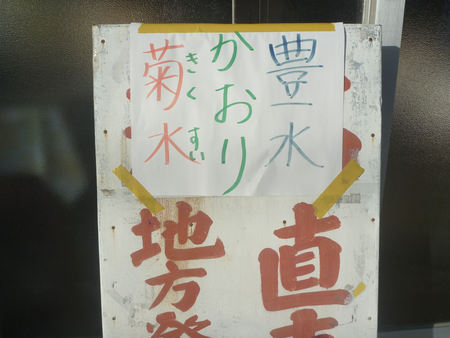 豊水
かおり
菊水
きくすい
直
地方発